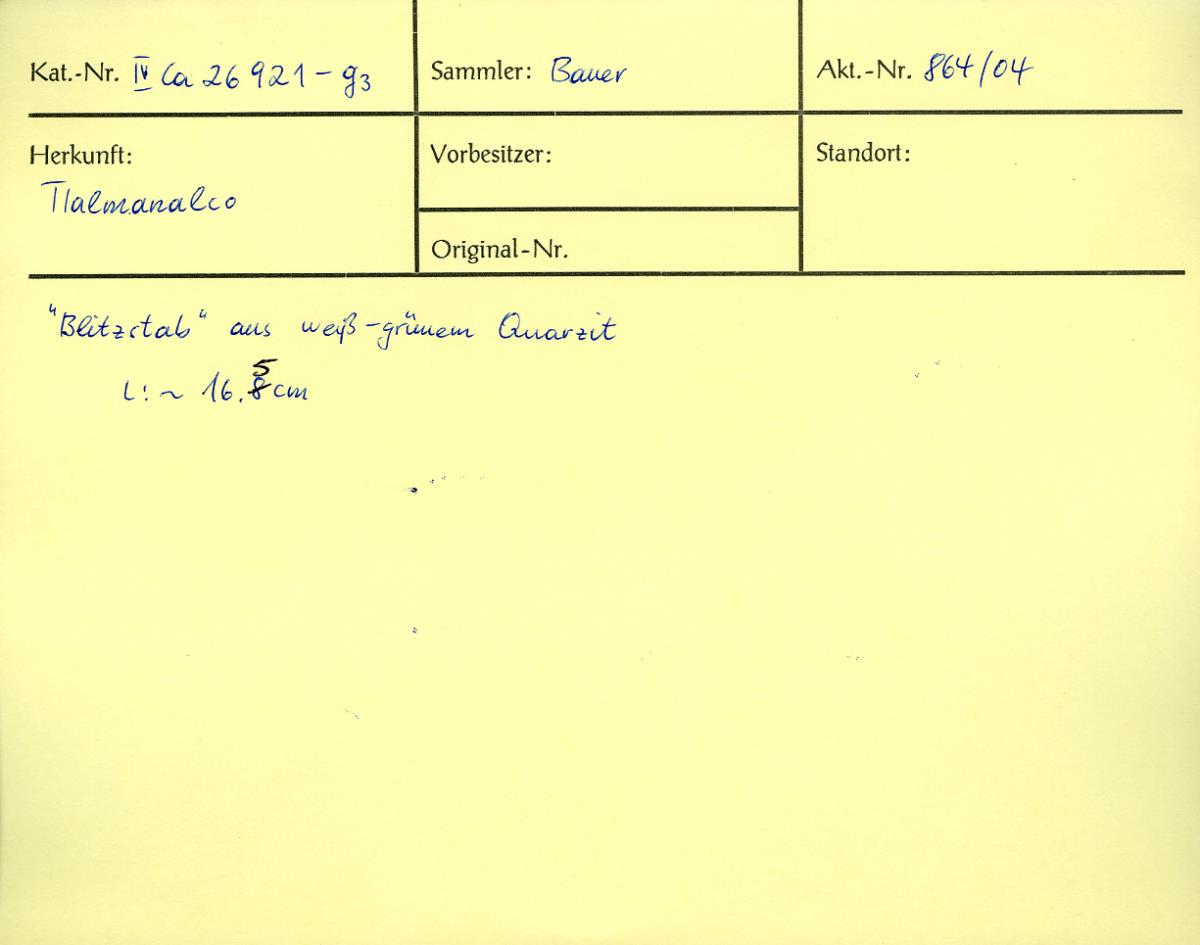 Kat.-Nr. IV Ca 26 921 - g3
Sammler: Bauer
Akt.-Nr. 864/04
Herkunft:
Tlalmanalco
Vorbesitzer:
Original-Nr.
Standort:
"Blitzstab" aus weiß-grünem Quarzit
L: ~ 16.5 cm